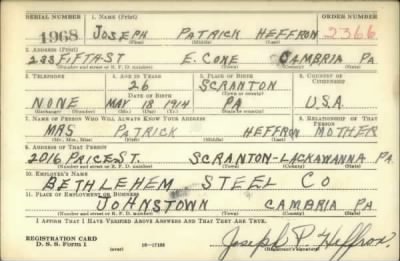 SERIAL NUMBER 1. NAME (Print) ORDER NUMBER
1968 JOSEPH PATRICK HEFFRON 2366
(First) (Middle) (Last)
2. ADDRESS (Print)
233 FIFTH ST E. CONE CAMBRIA PA
(Number and street or R. F. D. number) (Town) (County) (State)
3. TELEPHONE 4. AGE IN YEARS 5. PLACE OF BIRTH 6. COUNTRY OF CITIZENSHIP
26 SCRANTON
DATE OF BIRTH (Town or county)
NONE MAY 18 1914 PA U.S.A.
(Exchange) (Number) (Mo.) (Day) (Yr.) (State or country)
7. NAME OF PERSON WHO WILL ALWAYS KNOW YOUR ADDRESS 8. RELATIONSHIP OF THAT PERSON
MRS PATRICK HEFFRON MOTHER
(Mr., Mrs., Miss) (First) (Middle) (Last)
9. ADDRESS OF THAT PERSON
2016 PRICE ST. SCRANTON-LACKAWANNA PA
(Number and street or R. F. D. number) (Town) (County) (State)
10. EMPLOYER'S NAME
BETHLEHEM STEEL CO
11. PLACE OF EMPLOYMENT OR BUSINESS
JOHNSTOWN CAMBRIA PA.
(Number and street or R. F. D. number) (Town) (County) (State)
I AFFIRM THAT I HAVE VERIFIED ABOVE ANSWERS AND THAT THEY ARE TRUE.
REGISTRATION CARD
D. S. S. Form 1 (over) 16-17105 Joseph P. Heffron.
(Registrant's signature)